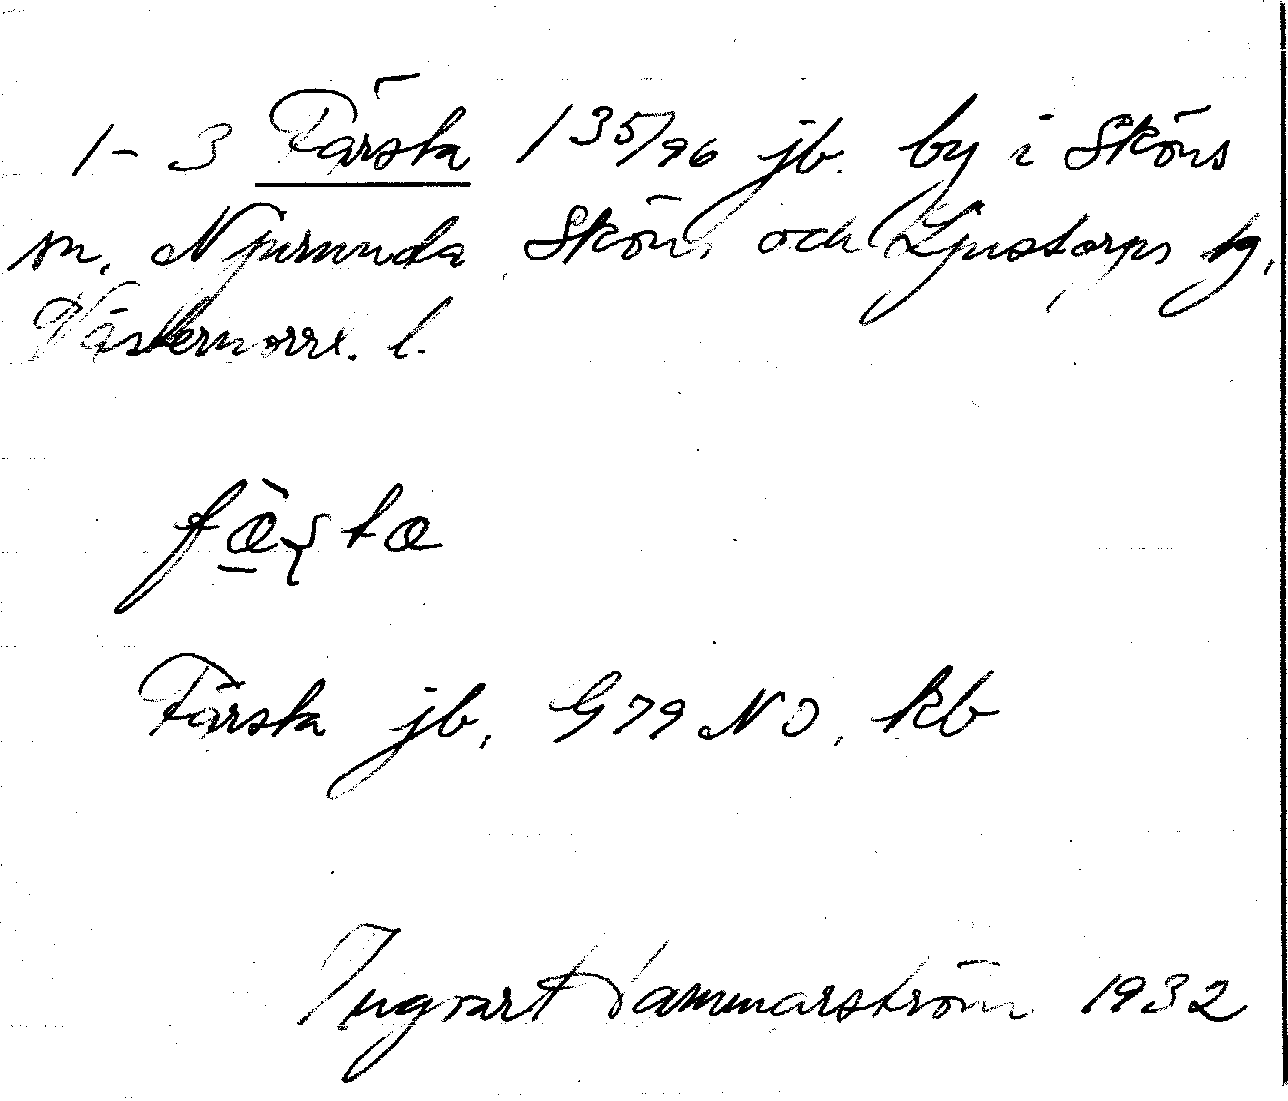 1-3 Färsta 1 35/96 jb. by i Sköns
sn, Njurunda, Sköns och Ljustorps tg,
Västernorrl. l.
Färsta jb, G 79 NO, kb
Ingvart Hammarström 1932